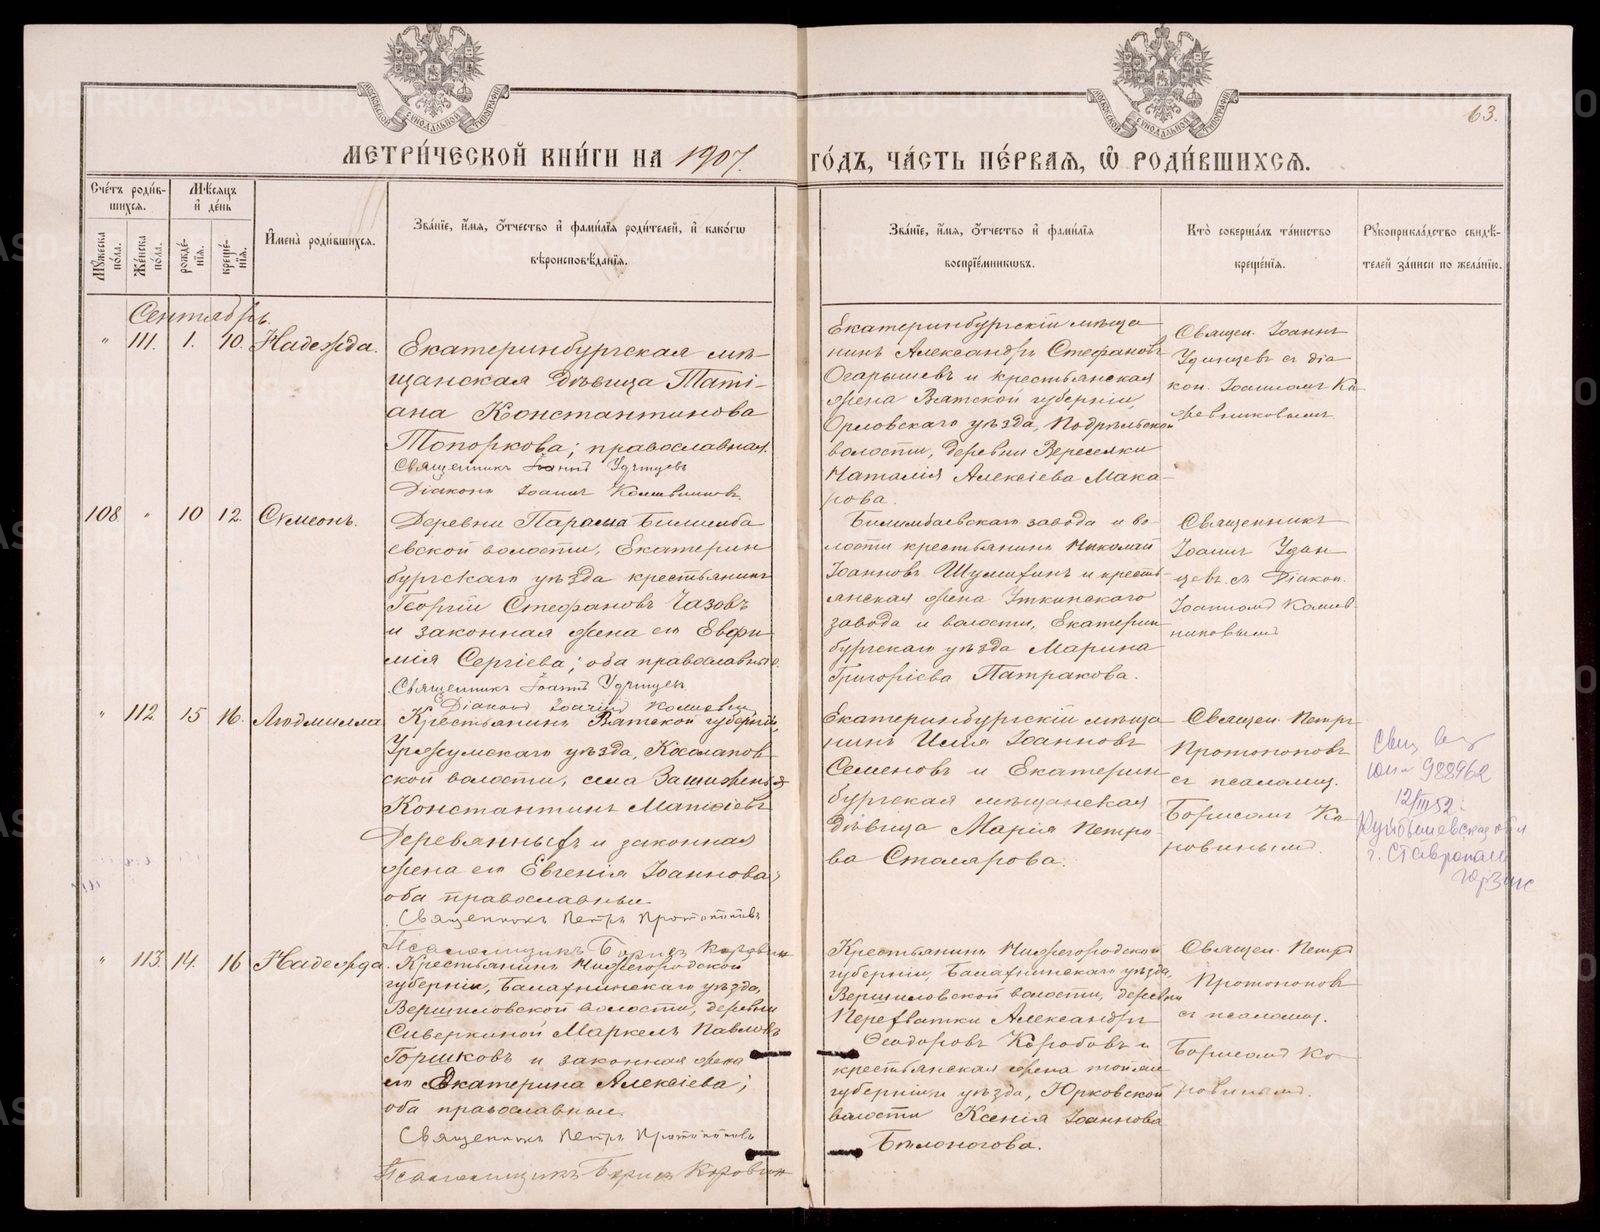 МЕТРИ́ЧЕСКОЙ КНИ́ГИ НА 1907. ГО́ДЪ, ЧА́СТЬ ПЕ́РВАЯ, Ѽ РОДИ́ВШИХСЯ.
63.
Сче́тъ роди́в-
шихся.
Мѣ́сяцъ
и҆ де́нь
Мꙋ́жеска
по́ла.
Же́нска
по́ла.
рожде́-
нїя.
креще́-
нїя.
И҆мена̀ роди́вшихся.
Зва́нїе, и҆́мя, ѻ҆́тчество и҆ фами́лїя роди́телей, и҆ како́гѡ
вѣроисповѣ́данїя.
Зва́нїе, и҆́мя, ѻ҆́тчество и҆ фами́лїя
воспрїе́мникѡвъ.
Кто̀ соверша́лъ та́инство
креще́нїя.
Рꙋкоприкла́дство свидѣ́-
телей за́писи по жела́нїю.
Сентябрь.
" 111. 1. 10. Надежда.
Екатеринбургская мѣ-
щанская дѣвица Таті-
ана Константинова
Топоркова; православная.
Священникъ Іоаннъ Удинцевъ
Діаконъ Іоаннъ Кожевниковъ.
Екатеринбургскій мѣща-
нинъ Александръ Стефановъ
Огарышевъ и крестьянская
жена Вятской губерніи,
Орловскаго уѣзда, Подрѣльской
волости, деревни Вереселки
Наталія Алексіева Мака-
рова.
Священ. Іоаннъ
Удинцевъ съ діа-
кон. Іоанномъ Ко-
жевниковымъ
108 " 10 12. Сѵмеонъ.
Деревни Параша Билимба
евской волости, Екатерин
бургскаго уѣзда крестьянинъ
Георгій Стефановъ Чазовъ
и законная жена его Евфи-
мія Сергіева; оба православные.
Священникъ Іоаннъ Удинцевъ
Діаконъ Іоаннъ Кожевник
Билимбаевскаго завода и во-
лости крестьянинъ Николай
Іоанновъ Шумихинъ и кресть-
янская жена Уткинскаго
завода и волости, Екатерин
бургскаго уѣзда Марина
Григоріева Патракова.
Священникъ
Іоаннъ Удин
цевъ съ Діакон.
Іоанномъ Кожев-
никовымъ
" 112 15 16. Людмилла
Крестьянинъ Вятской губерніи,
Уржумскаго уѣзда, Косолапов
ской волости, села Зашижемья
Константинъ Матѳіевъ
Деревянныхъ и законная
жена его Евгенія Іоаннова;
оба православные
Священникъ Петръ Протопоповъ
Псаломщикъ Борисъ Коровинъ
Екатеринбургскій мѣща-
нинъ Илія Іоанновъ
Семеновъ и Екатерин
бургская мѣщанская
дѣвица Марія Петро-
ва Столярова.
Священ. Петръ
Протопоповъ
съ псаломщ.
Борисомъ Ко-
ровинымъ.
988962
12/III 52.
Куйбышевская обл
г. Ставрополь
" 113. 14. 16 Надежда.
Крестьянинъ Нижегородской
губерніи, Балахнинскаго уѣзда,
Вершиловской волости, деревни
Сиверкиной Маркелъ Павловъ
Горшковъ и законная жена
его Екатерина Алексіева;
оба православные.
Священникъ Петръ Протопоповъ
Псаломщикъ Борисъ Коровинъ
Крестьянинъ Нижегородской
губерніи, Балахнинскаго уѣзда,
Вершиловской волости, деревни
Перехватки Александръ
Ѳеодоровъ Коробовъ и
крестьянская жена той же
губерніи и уѣзда, Юрковской
волости Ксенія Іоаннова
Бѣлоногова.
Священ. Петръ
Протопоповъ
съ псаломщ.
Борисомъ Ко-
ровинымъ.